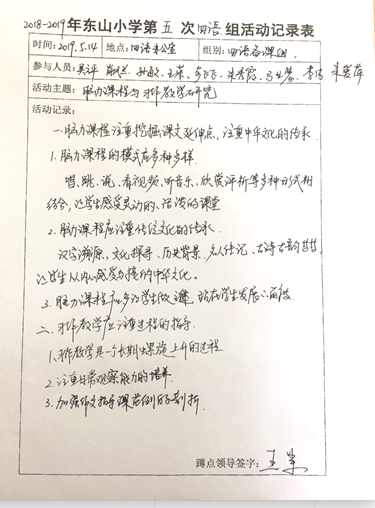 2018-2019年东山小学第五次四语组活动记录表
时间:2019.5.14 地点:四语办公室 组别:四语备课组
参与人员:吴评 孙敏 王荣 李洁 朱爱萍
活动主题:脑力课程与习作教学研究
活动记录:
一.脑力课程注重挖掘课文延伸点,注重中华文化的传承
1.脑力课程的模式应多种多样.
唱、跳、说、看视频、听音乐、欣赏评析等多种形式相
结合,让学生感受灵动的、活泼的课堂
2.脑力课程应注重传统文化的传承
汉字溯源、文化探寻、历史背景、名人传记、古诗古韵
让学生从内心感受的中华文化。
3.脑力课程应多让学生做,站在学生发展
二.习作教学应注重过程的指导
1.习作教学是一个长期螺旋上升的过程
2.注重日常观察能力的培养
3.加强作文指导课范例的剖析
蹲点领导签字:王